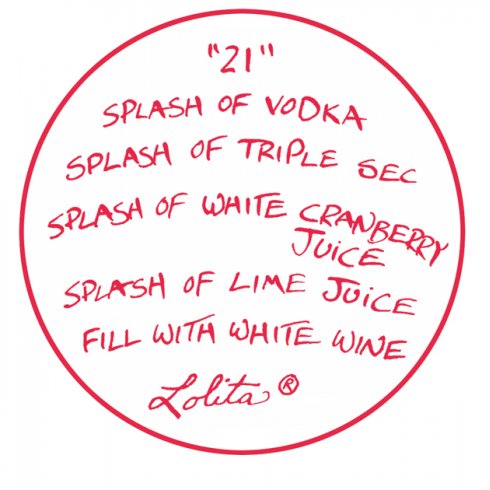 "21"
SPLASH OF VODKA
SPLASH OF TRIPLE SEC
SPLASH OF WHITE CRANBERRY
JUICE
SPLASH OF LIME JUICE
FILL WITH WHITE WINE
Lolita ®